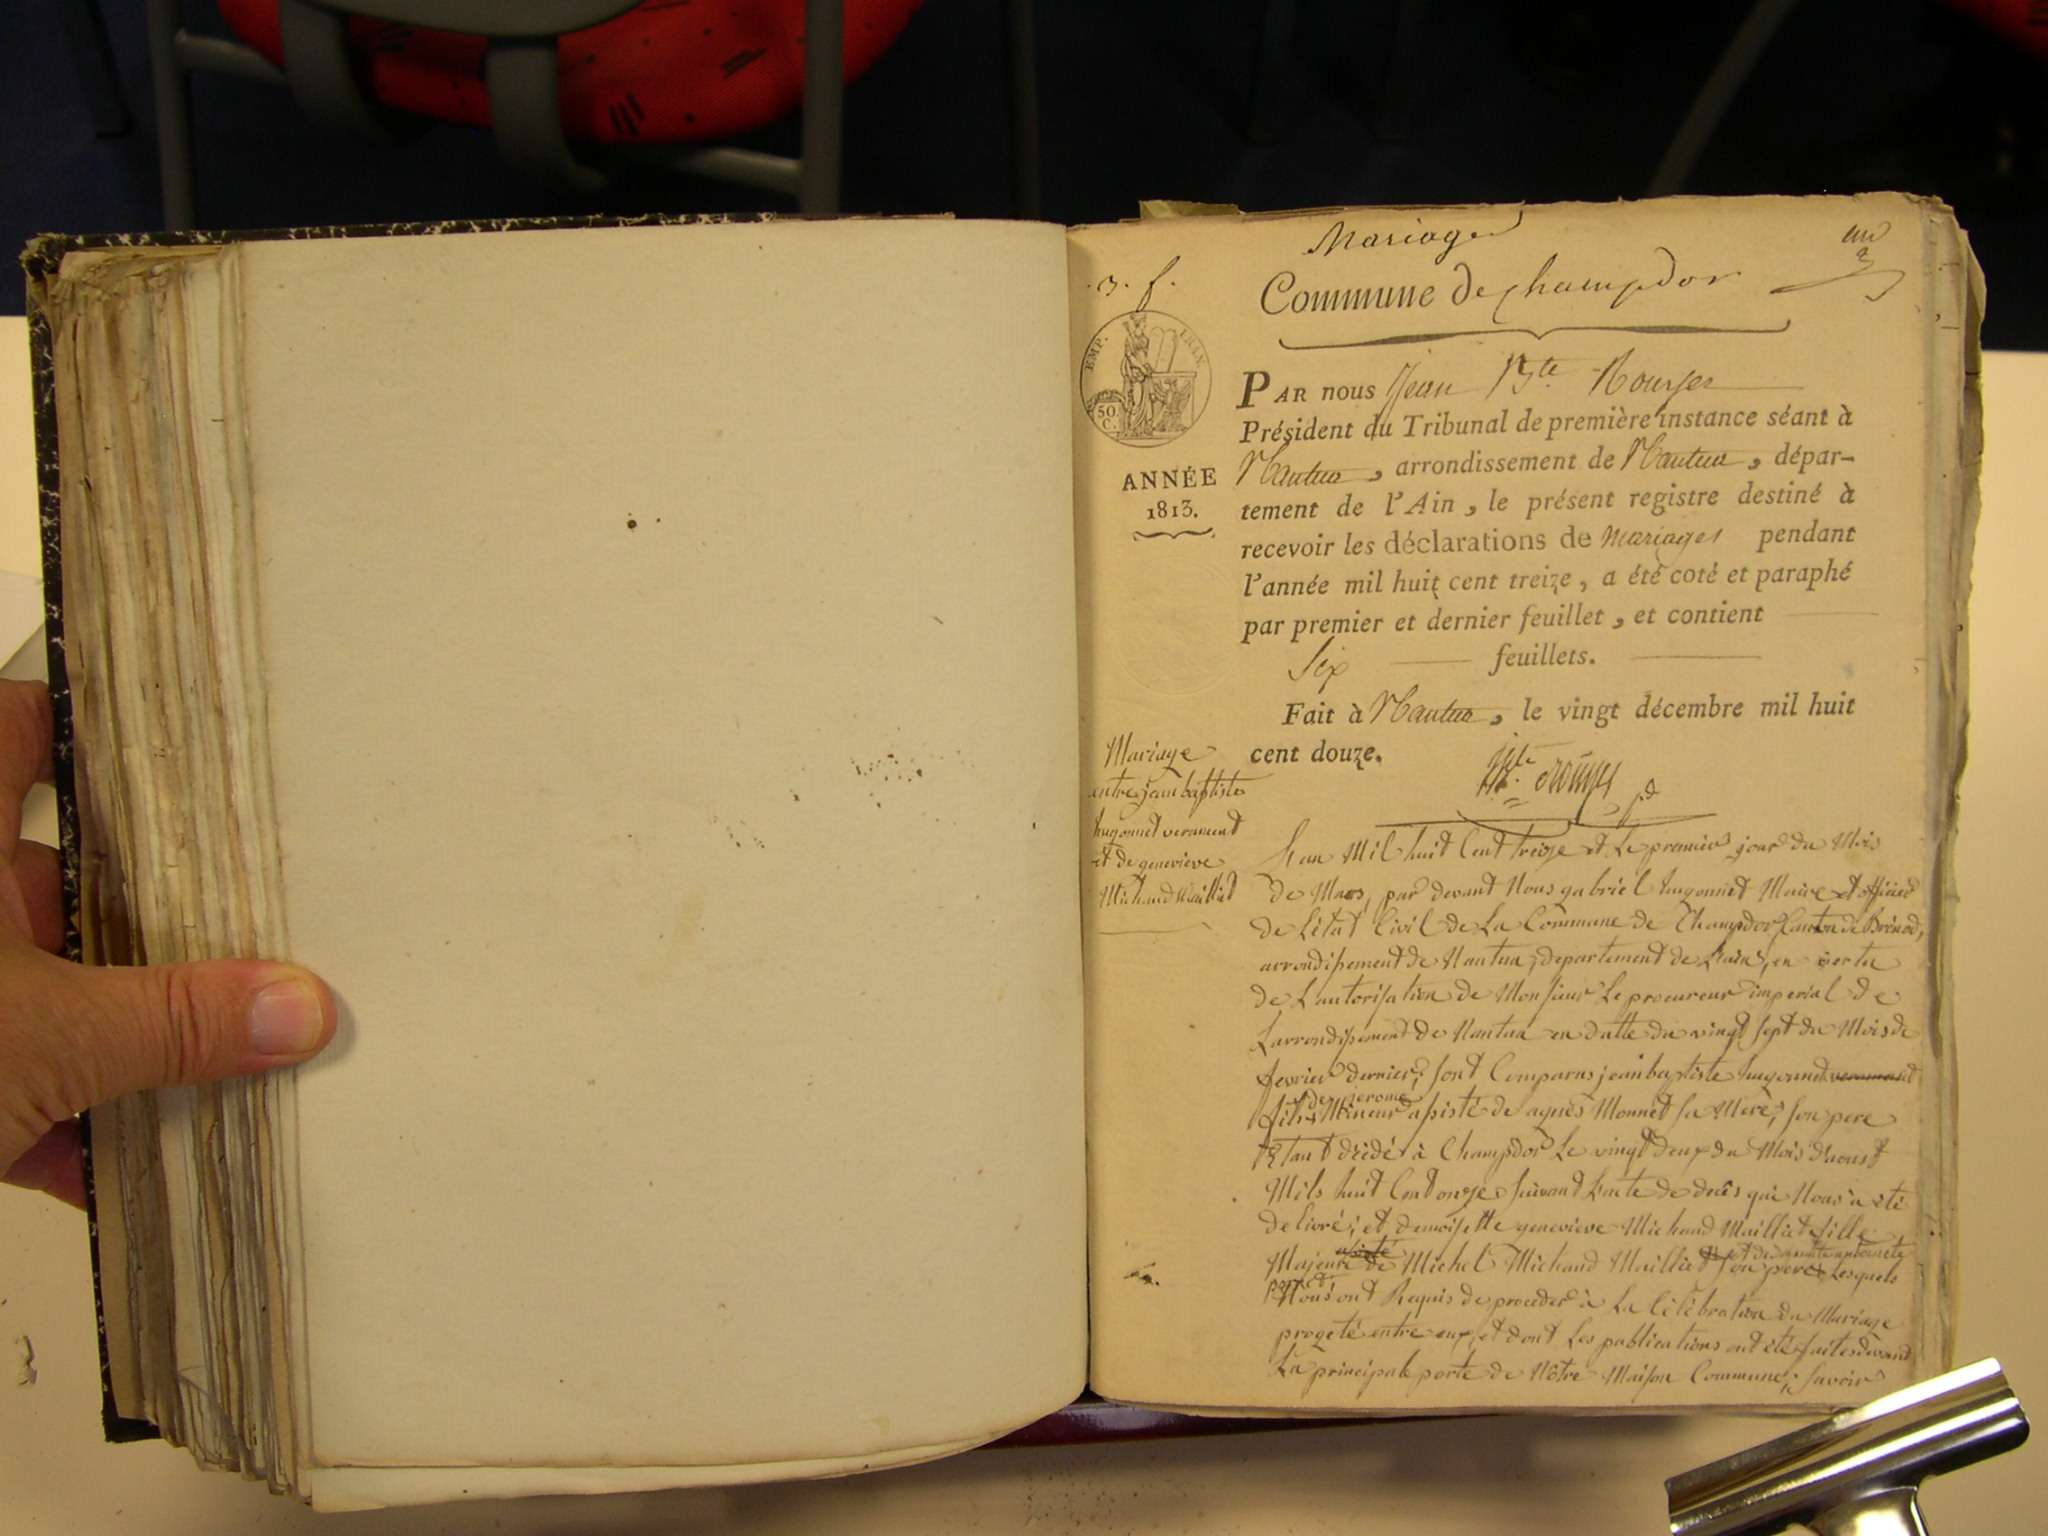 Mariages
un
3. f.
Commune de champdor
EMP. FRAN.
50.
C.
ANNÉE
1813.
PAR nous Jean Bte Rouyer
Président du Tribunal de première instance séant à
Nantua, arrondissement de Nantua, dépar-
tement de l'Ain, le présent registre destiné à
recevoir les déclarations de mariages pendant
l'année mil huit cent treize, a été coté et paraphé
par premier et dernier feuillet, et contient
Six feuillets.
Fait à Nantua, le vingt décembre mil huit
cent douze.
Mariage
entre jean baptiste
hugonnet verament
et de genevieve
Michaud Mailliat
L'an Mil huit Cent treize et Le premier jour du Mois
de Mars, par devant Nous gabriel hugonnet Maire et officier
de L'état Civil de La Commune de Champdor Canton de Brénod,
arrondissement de Nantua, departement de L'ain, en vertu
de L'autorisation de Monsieur Le procureur imperial de
L'arrondissement de Nantua en datte du vingt sept du Mois de
fevrier dernier; sont Comparus jean baptiste hugonnet verament
de jerome
fils Mineur assisté de agnès Monnet sa Mere, son pere
Etant décédé à Champdor Le vingt deux du Mois d'aoust
Mils huit Cent onze suivant L'acte de decès qui Nous a été
delivré; et demoiselle genevieve Michaud Mailliat fille
assisté
Majeure de Michel Michaud Mailliat son pere Lesquels
Nous ont Requis de proceder à La Célébration du Mariage
progeté entre eux, et dont Les publications ont été faites devant
La principale porte de Nôtre Maison Commune; savoir